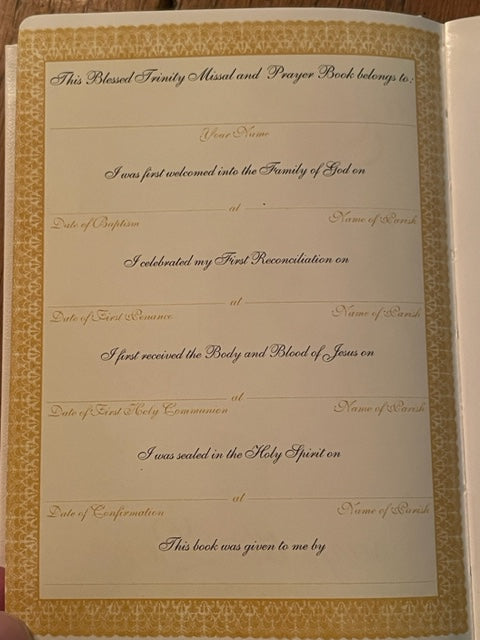 This Blessed Trinity Missal and Prayer Book belongs to:
Your Name
I was first welcomed into the Family of God on
at
Date of Baptism Name of Parish
I celebrated my First Reconciliation on
at
Date of First Penance Name of Parish
I first received the Body and Blood of Jesus on
at
Date of First Holy Communion Name of Parish
I was sealed in the Holy Spirit on
at
Date of Confirmation Name of Parish
This book was given to me by